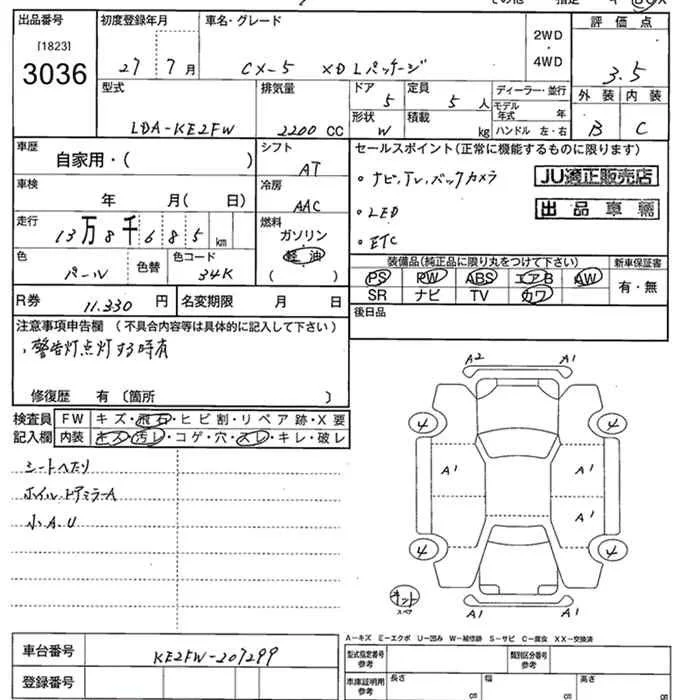 出品番号 初度登録年月 車名・グレード 評価点
[1823]
3036 27 7月 CX-5 XD Lパッケージ 2WD・4WD 3.5
型式 排気量 ドア 定員 ディーラー・並行 外装 内装
5 5人 モデル年式 年
LDA-KE2FW 2200 CC 形状 W 積載 kg ハンドル 左・右 B C
車歴 自家用・( ) シフト AT セールスポイント(正常に機能するものに限ります)
・ナビ,TV,バックカメラ JU適正販売店
車検 年 月( 日) 冷房 AAC ・LED 出品車輛
走行 13万8千685km 燃料 ガソリン 軽油 ( ) ・ETC
色 パール 色替 色コード 34K 装備品(純正品に限り丸をつけて下さい) 新車保証書
PS PW ABS エアB AW 有・無
SR ナビ TV カワ
R券 11.330円 名変期限 月 日 後日品
注意事項申告欄 (不具合内容等は具体的に記入して下さい)
、警告灯点灯する時有
修復歴 有〔箇所 〕
検査員 FW キズ・飛石・ヒビ割・リペア跡・X要
記入欄 内装 キズ・汚レ・コゲ・穴・スレ・キレ・破レ
シートへたり
ホイル ドアミラーA
小A.U
A2 A1
4 4
A' A'
A'
4 4
キット スペア A1 A1
A-キズ E-エクボ U-凹み W-補修跡 S-サビ C-腐食 XX-交換済
車台番号 KE2FW-207299 型式指定番号 参考 類別区分番号 参考
登録番号 車庫証明用 参考 長さ cm 幅 cm 高さ cm